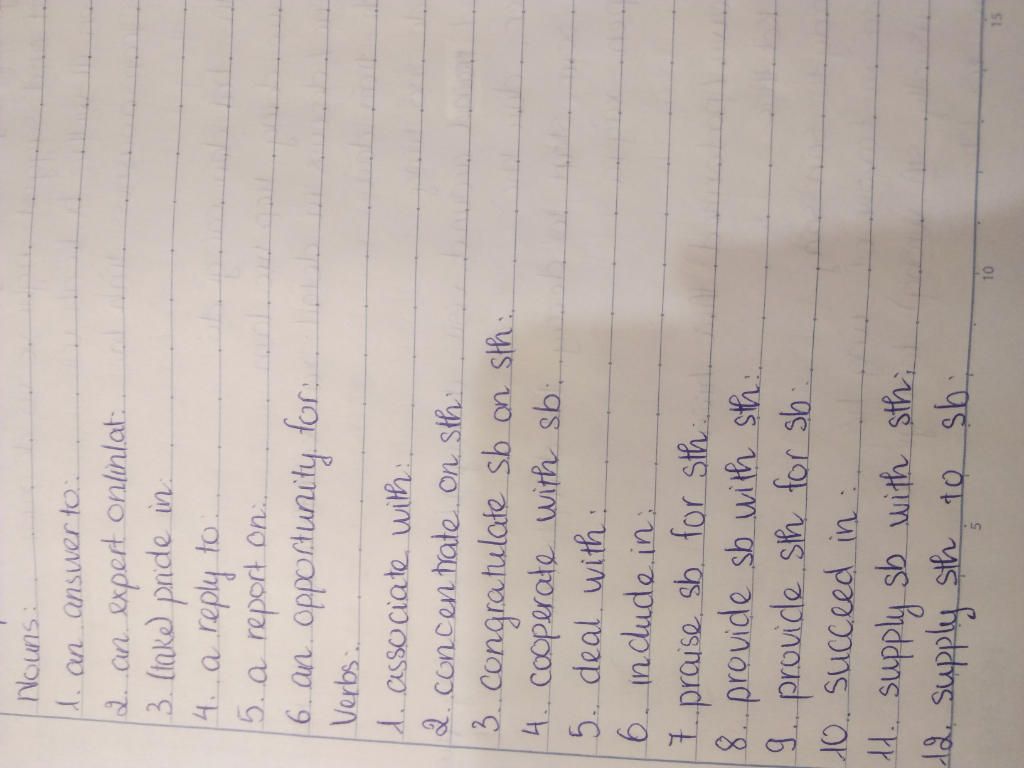 Nouns:
1. an answer to:
2. an expert on/in/at:
3. (take) pride in:
4. a reply to:
5. a report on:
6. an opportunity for:
Verbs:
1. associate with:
2. concentrate on sth:
3. congratulate sb on sth:
4. cooperate with sb:
5. deal with:
6. include in:
7. praise sb for sth:
8. provide sb with sth:
9. provide sh for sb:
10. succeed in:
11. supply sb with sth:
12. supply sth to sb:
5
10
15